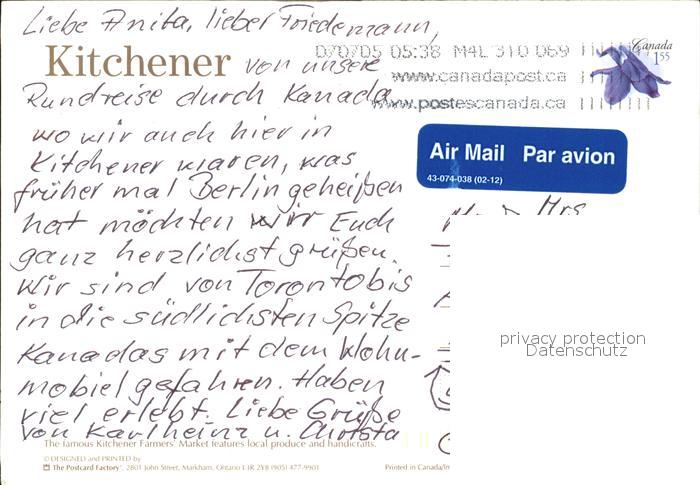 Liebe Anita, lieber Friedemann,
Kitchener von unsere
Rundreise durch Kanada
wo wir auch hier in
Kitchener waren, was
früher mal Berlin geheißen
hat möchten wir Euch
ganz herzlichst grüßen.
Wir sind von Toronto bis
in die südlichsten Spitze
Kanadas mit dem Wohn-
mobiel gefahren. Haben
viel erlebt. Liebe Grüße
von Karlheinz u.
070705 05:38 M4L 310 069
www.canadapost.ca
www.postescanada.ca
Canada
1.55
Air Mail Par avion
43-074-038 (02-12)
Mrs
privacy protection
Datenschutz
The famous Kitchener Farmers' Market features local produce and handicrafts.
© DESIGNED and PRINTED by
The Postcard Factory, 2801 John Street, Markham, Ontario L3R 2Y8 (905) 477-9901
Printed in Canada/